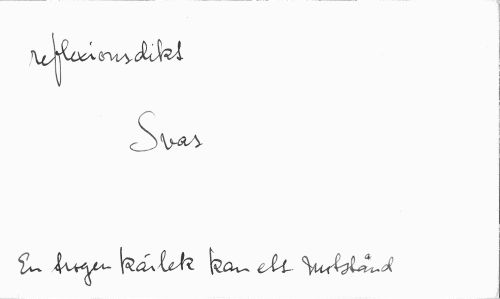 reflexionsdikt
Svas
En trogen kärlek kan ett motstånd